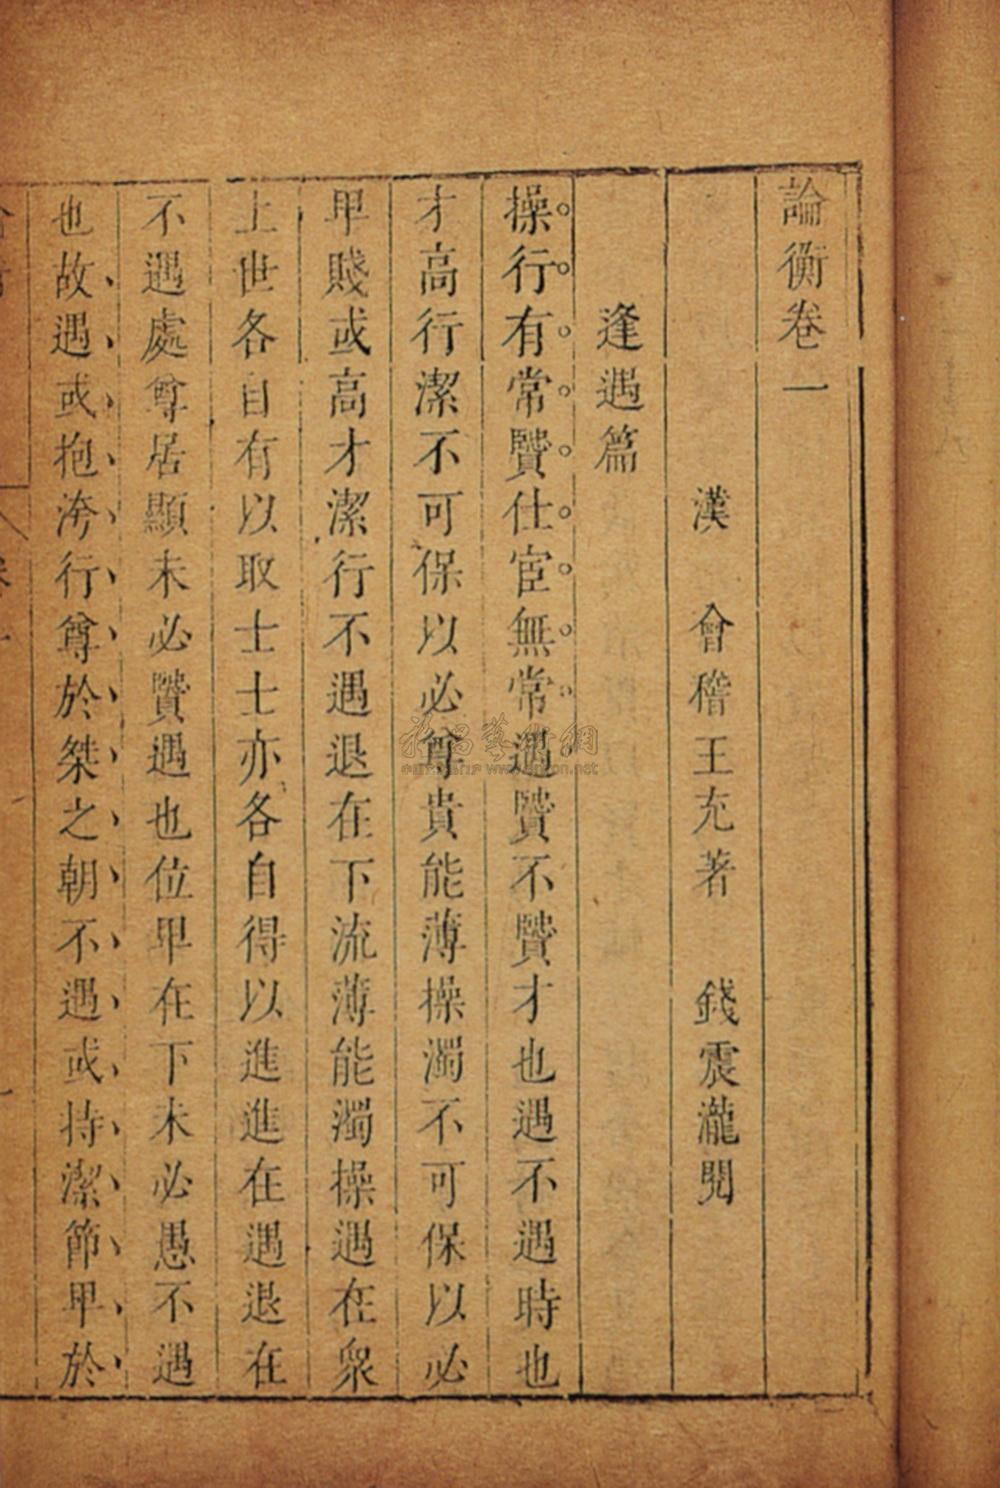 論衡卷一
漢 會稽王充著 錢震瀧閱
逢遇篇
操行有常贒仕宦無常遇贒不贒才也遇不遇時也
才高行潔不可保以必尊貴能薄操濁不可保以必
卑賤或高才潔行不遇退在下流薄能濁操遇在衆
上世各自有以取士士亦各自得以進進在遇退在
不遇處尊居顯未必贒遇也位卑在下未必愚不遇
也故遇或抱洿行尊於桀之朝不遇或持潔節卑於
雅昌藝術網
www.artron.net